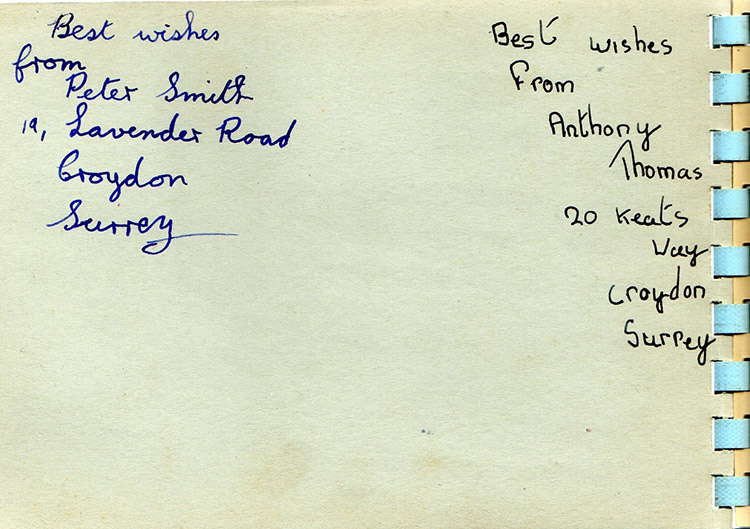 Best wishes
from
Peter Smith
19, Lavender Road
Croydon
Surrey
Best wishes
From
Anthony
Thomas
20 Keats
Way
Croydon
Surrey